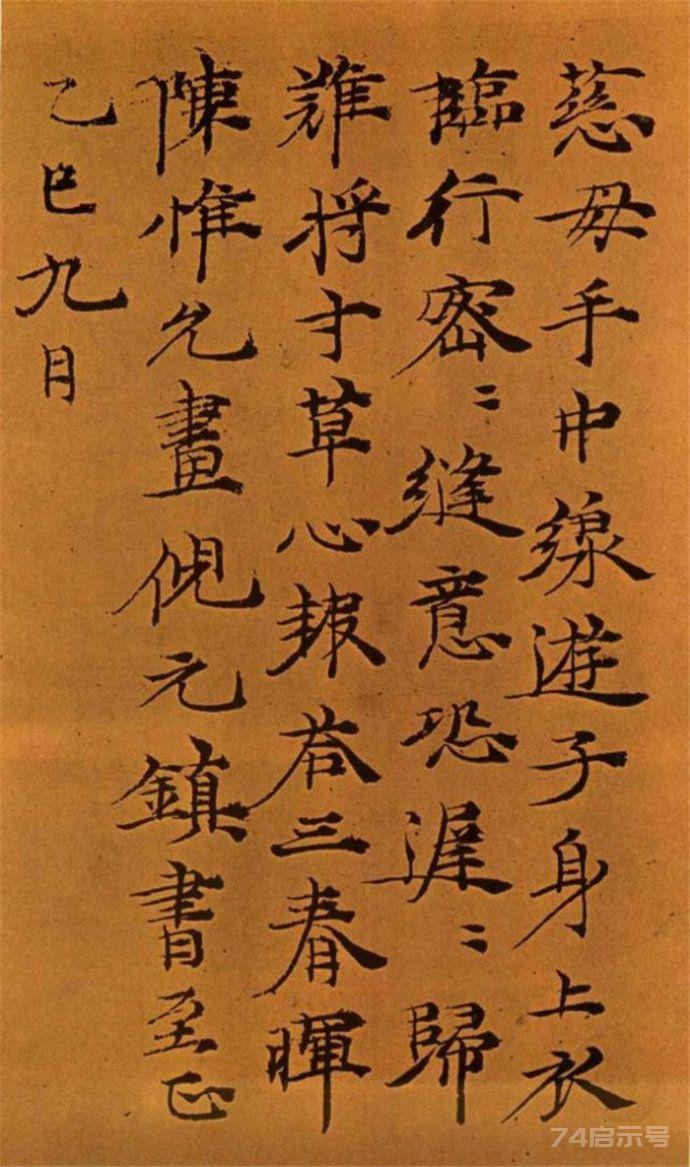 慈母手中線遊子身上衣
臨行密〻縫意恐遲〻歸
難将寸草心報荅三春暉
陳惟允畫倪元鎮書至正
乙巳九月
74启示号